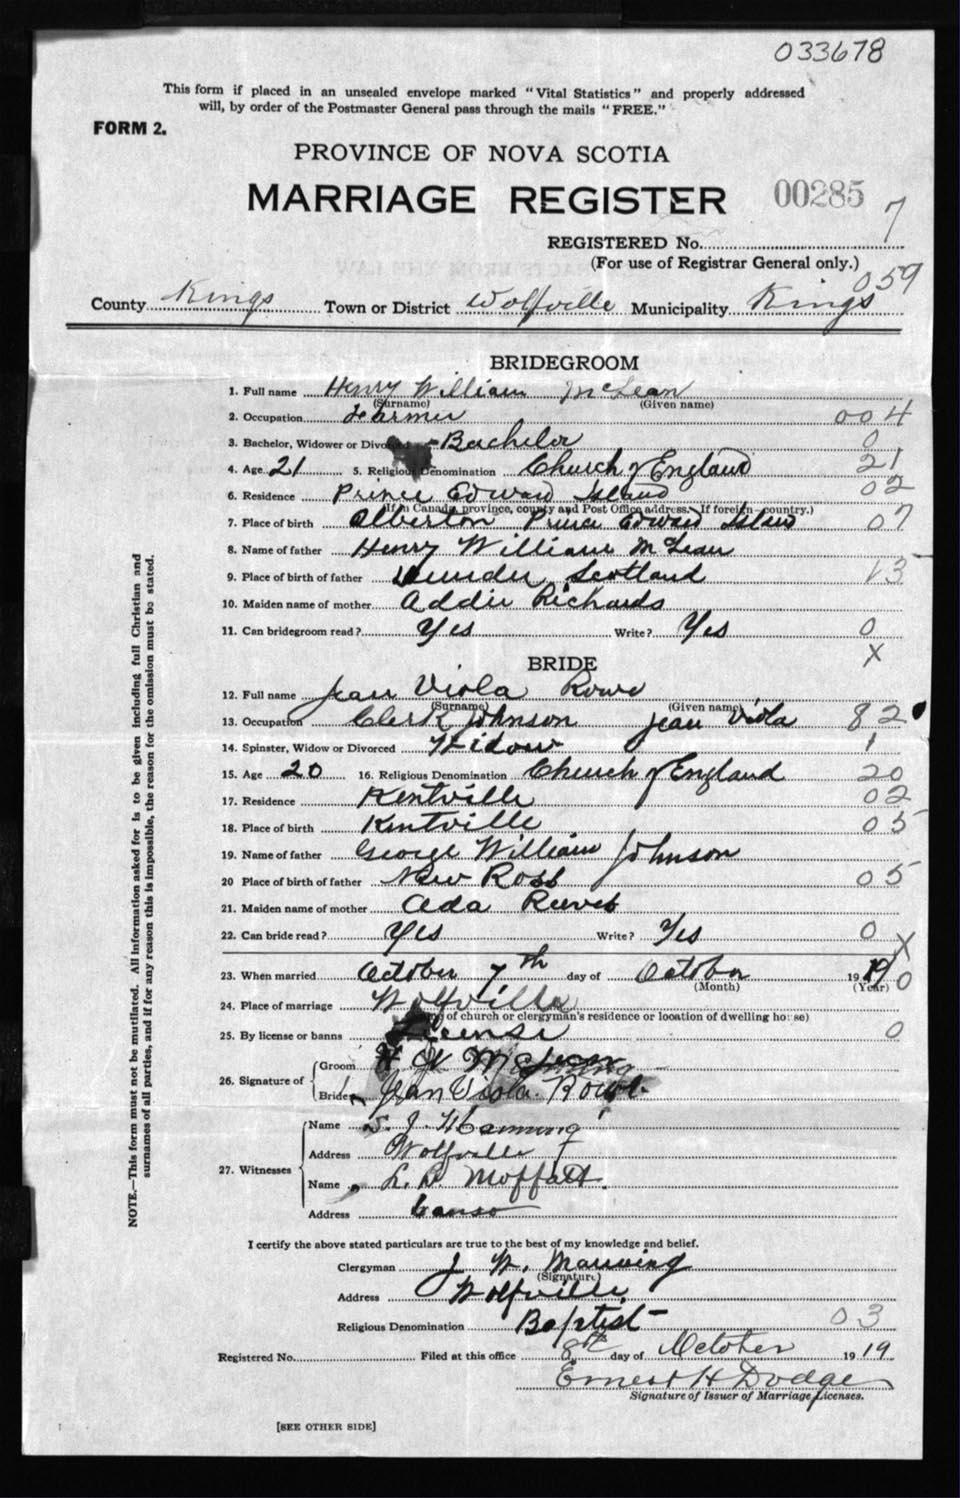 033678
This form if placed in an unsealed envelope marked "Vital Statistics" and properly addressed
will, by order of the Postmaster General pass through the mails "FREE."
FORM 2.
PROVINCE OF NOVA SCOTIA
MARRIAGE REGISTER 00285
REGISTERED No. 7
(For use of Registrar General only.)
059
County Kings Town or District Wolfville Municipality Kings
BRIDEGROOM
1. Full name Henry William McLean
(Surname) (Given name)
2. Occupation Farmer 004
3. Bachelor, Widower or Divo Bachelor 0
4. Age 21 5. Religious Denomination Church of England 21
6. Residence Prince Edward Island 02
(If in Canada, province, county and Post Office address. If foreign—country.)
7. Place of birth Alberton Prince Edward Island 07
8. Name of father Henry William McLean
9. Place of birth of father Scotland 13
10. Maiden name of mother Addie Richards
11. Can bridegroom read? Yes Write? Yes 0
X
BRIDE
12. Full name Jean Viola Rowe
(Surname) (Given name)
13. Occupation Clerk Johnson Jean Viola 82
14. Spinster, Widow or Divorced Widow 1
15. Age 20 16. Religious Denomination Church of England 20
17. Residence Kentville 02
18. Place of birth Kentville 05
19. Name of father George William Johnson
20 Place of birth of father New Ross 05
21. Maiden name of mother Ada Reeves
22. Can bride read? Yes Write? Yes 0 X
23. When married October 7th day of October 1919 0
(Month) (Year)
24. Place of marriage Wolfville
of church or clergyman's residence or location of dwelling house)
25. By license or banns License 0
26. Signature of
Groom H W McLean
Bride Jean Viola Rowe
27. Witnesses
Name S. J. Manning
Address Wolfville
Name L. D. Moffatt.
Address Canso
I certify the above stated particulars are true to the best of my knowledge and belief.
Clergyman J. W. Manning
(Signature)
Address Wolfville
Religious Denomination Baptist 03
Registered No. Filed at this office 8th day of October 1919
Ernest H Dodge
Signature of Issuer of Marriage Licenses.
[SEE OTHER SIDE]
NOTE.—This form must not be mutilated. All information asked for is to be given including full Christian and
surnames of all parties, and if for any reason this is impossible, the reason for the omission must be stated.